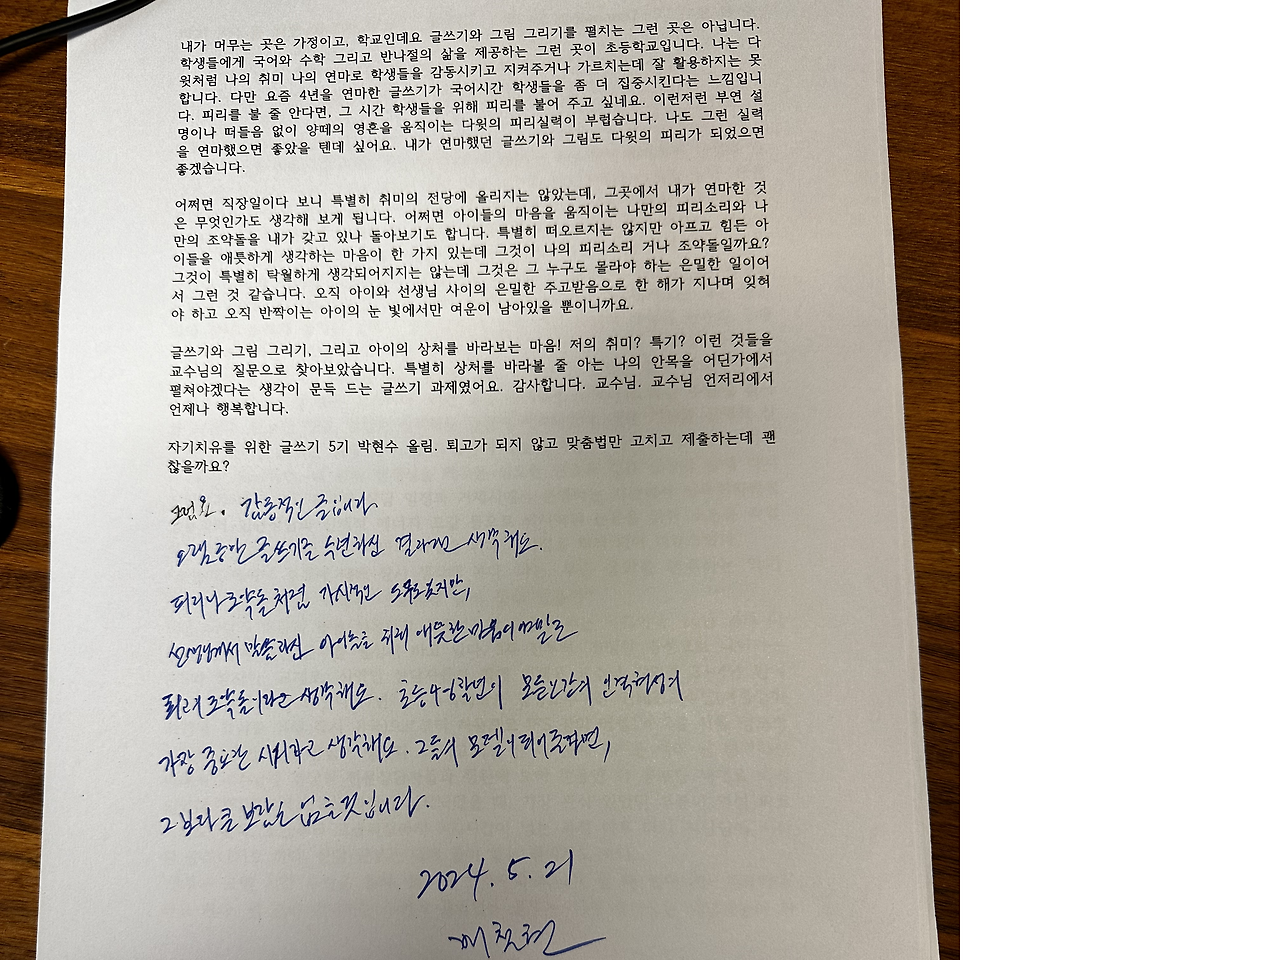 내가 머무는 곳은 가정이고, 학교인데요 글쓰기와 그림 그리기를 펼치는 그런 곳은 아닙니다.
학생들에게 국어와 수학 그리고 반나절의 삶을 제공하는 그런 곳이 초등학교입니다. 나는 다
윗처럼 나의 취미 나의 연마로 학생들을 감동시키고 지켜주거나 가르치는데 잘 활용하지는 못
합니다. 다만 요즘 4년을 연마한 글쓰기가 국어시간 학생들을 좀 더 집중시킨다는 느낌입니
다. 피리를 불 줄 안다면, 그 시간 학생들을 위해 피리를 불어 주고 싶네요. 이런저런 부연 설
명이나 떠들음 없이 양떼의 영혼을 움직이는 다윗의 피리실력이 부럽습니다. 나도 그런 실력
을 연마했으면 좋았을 텐데 싶어요. 내가 연마했던 글쓰기와 그림도 다윗의 피리가 되었으면
좋겠습니다.
어쩌면 직장일이다 보니 특별히 취미의 전당에 올리지는 않았는데, 그곳에서 내가 연마한 것
은 무엇인가도 생각해 보게 됩니다. 어쩌면 아이들의 마음을 움직이는 나만의 피리소리와 나
만의 조약돌을 내가 갖고 있나 돌아보기도 합니다. 특별히 떠오르지는 않지만 아프고 힘든 아
이들을 애틋하게 생각하는 마음이 한 가지 있는데 그것이 나의 피리소리 거나 조약돌일까요?
그것이 특별히 탁월하게 생각되어지지는 않는데 그것은 그 누구도 몰라야 하는 은밀한 일이어
서 그런 것 같습니다. 오직 아이와 선생님 사이의 은밀한 주고받음으로 한 해가 지나며 잊혀
야 하고 오직 반짝이는 아이의 눈 빛에서만 여운이 남아있을 뿐이니까요.
글쓰기와 그림 그리기, 그리고 아이의 상처를 바라보는 마음! 저의 취미? 특기? 이런 것들을
교수님의 질문으로 찾아보았습니다. 특별히 상처를 바라볼 줄 아는 나의 안목을 어딘가에서
펼쳐야겠다는 생각이 문득 드는 글쓰기 과제였어요. 감사합니다. 교수님. 교수님 언저리에서
언제나 행복합니다.
자기치유를 위한 글쓰기 5기 박현수 올림. 퇴고가 되지 않고 맞춤법만 고치고 제출하는데 괜
찮을까요?
그럼요. 감동적인 글입니다
오랫동안 글쓰기를 수련하신 결과라고 생각해요.
피리나 조약돌처럼 가시적인 도구도 있지만,
선생님께서 말씀하신 아이들을 위해 애틋한 마음이 정말로
피리이 조약돌이라고 생각해요. 초등4-6학년이 모든 인간의 인격형성에
가장 중요한 시기라고 생각해요. 그들의 모델이 되어준다면,
그보다 큰 보람은 없을 것입니다.
2024. 5. 21
배철현